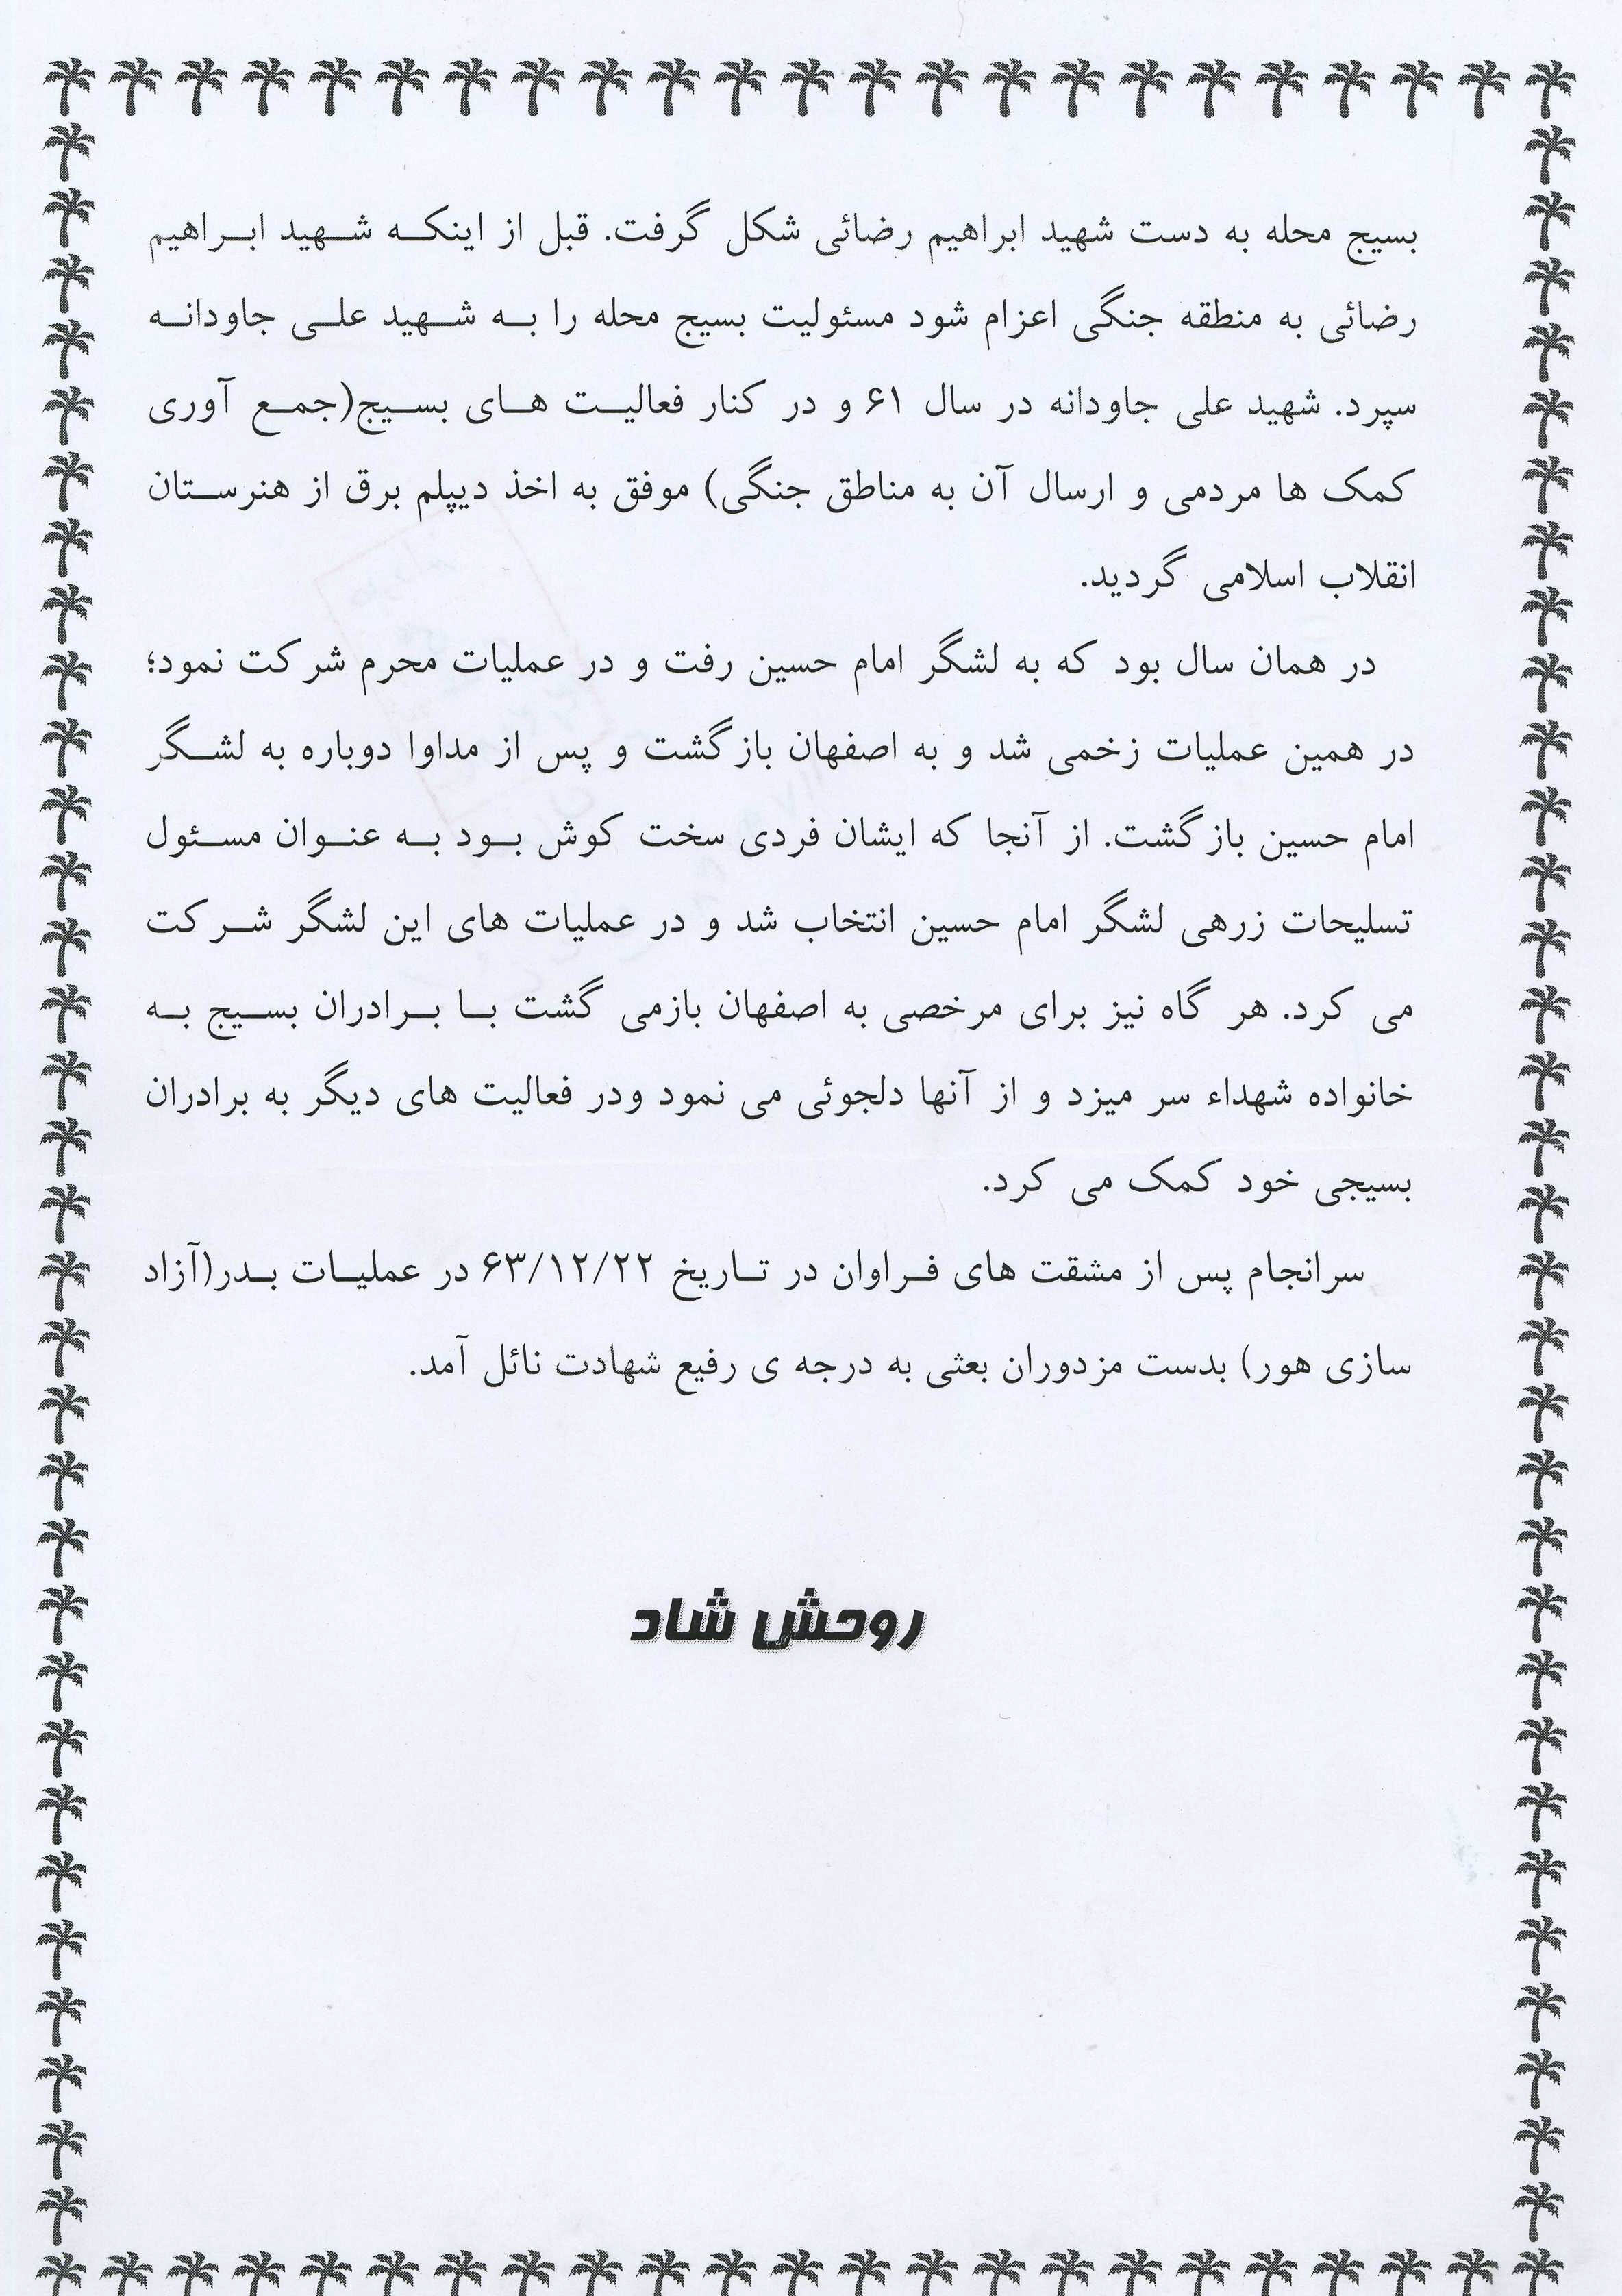 بسیج محله به دست شهید ابراهیم رضائی شکل گرفت. قبل از اینکه شهید ابراهیم
رضائی به منطقه جنگی اعزام شود مسئولیت بسیج محله را به شهید علی جاودانه
سپرد. شهید علی جاودانه در سال ۶۱ و در کنار فعالیت های بسیج(جمع آوری
کمک ها مردمی و ارسال آن به مناطق جنگی) موفق به اخذ دیپلم برق از هنرستان
انقلاب اسلامی گردید.
در همان سال بود که به لشگر امام حسین رفت و در عملیات محرم شرکت نمود؛
در همین عملیات زخمی شد و به اصفهان بازگشت و پس از مداوا دوباره به لشگر
امام حسین بازگشت. از آنجا که ایشان فردی سخت کوش بود به عنوان مسئول
تسلیحات زرهی لشگر امام حسین انتخاب شد و در عملیات های این لشگر شرکت
می کرد. هر گاه نیز برای مرخصی به اصفهان بازمی گشت با برادران بسیج به
خانواده شهداء سر میزد و از آنها دلجوئی می نمود ودر فعالیت های دیگر به برادران
بسیجی خود کمک می کرد.
سرانجام پس از مشقت های فراوان در تاریخ ۶۳/۱۲/۲۲ در عملیات بدر(آزاد
سازی هور) بدست مزدوران بعثی به درجه ی رفیع شهادت نائل آمد.
روحش شاد